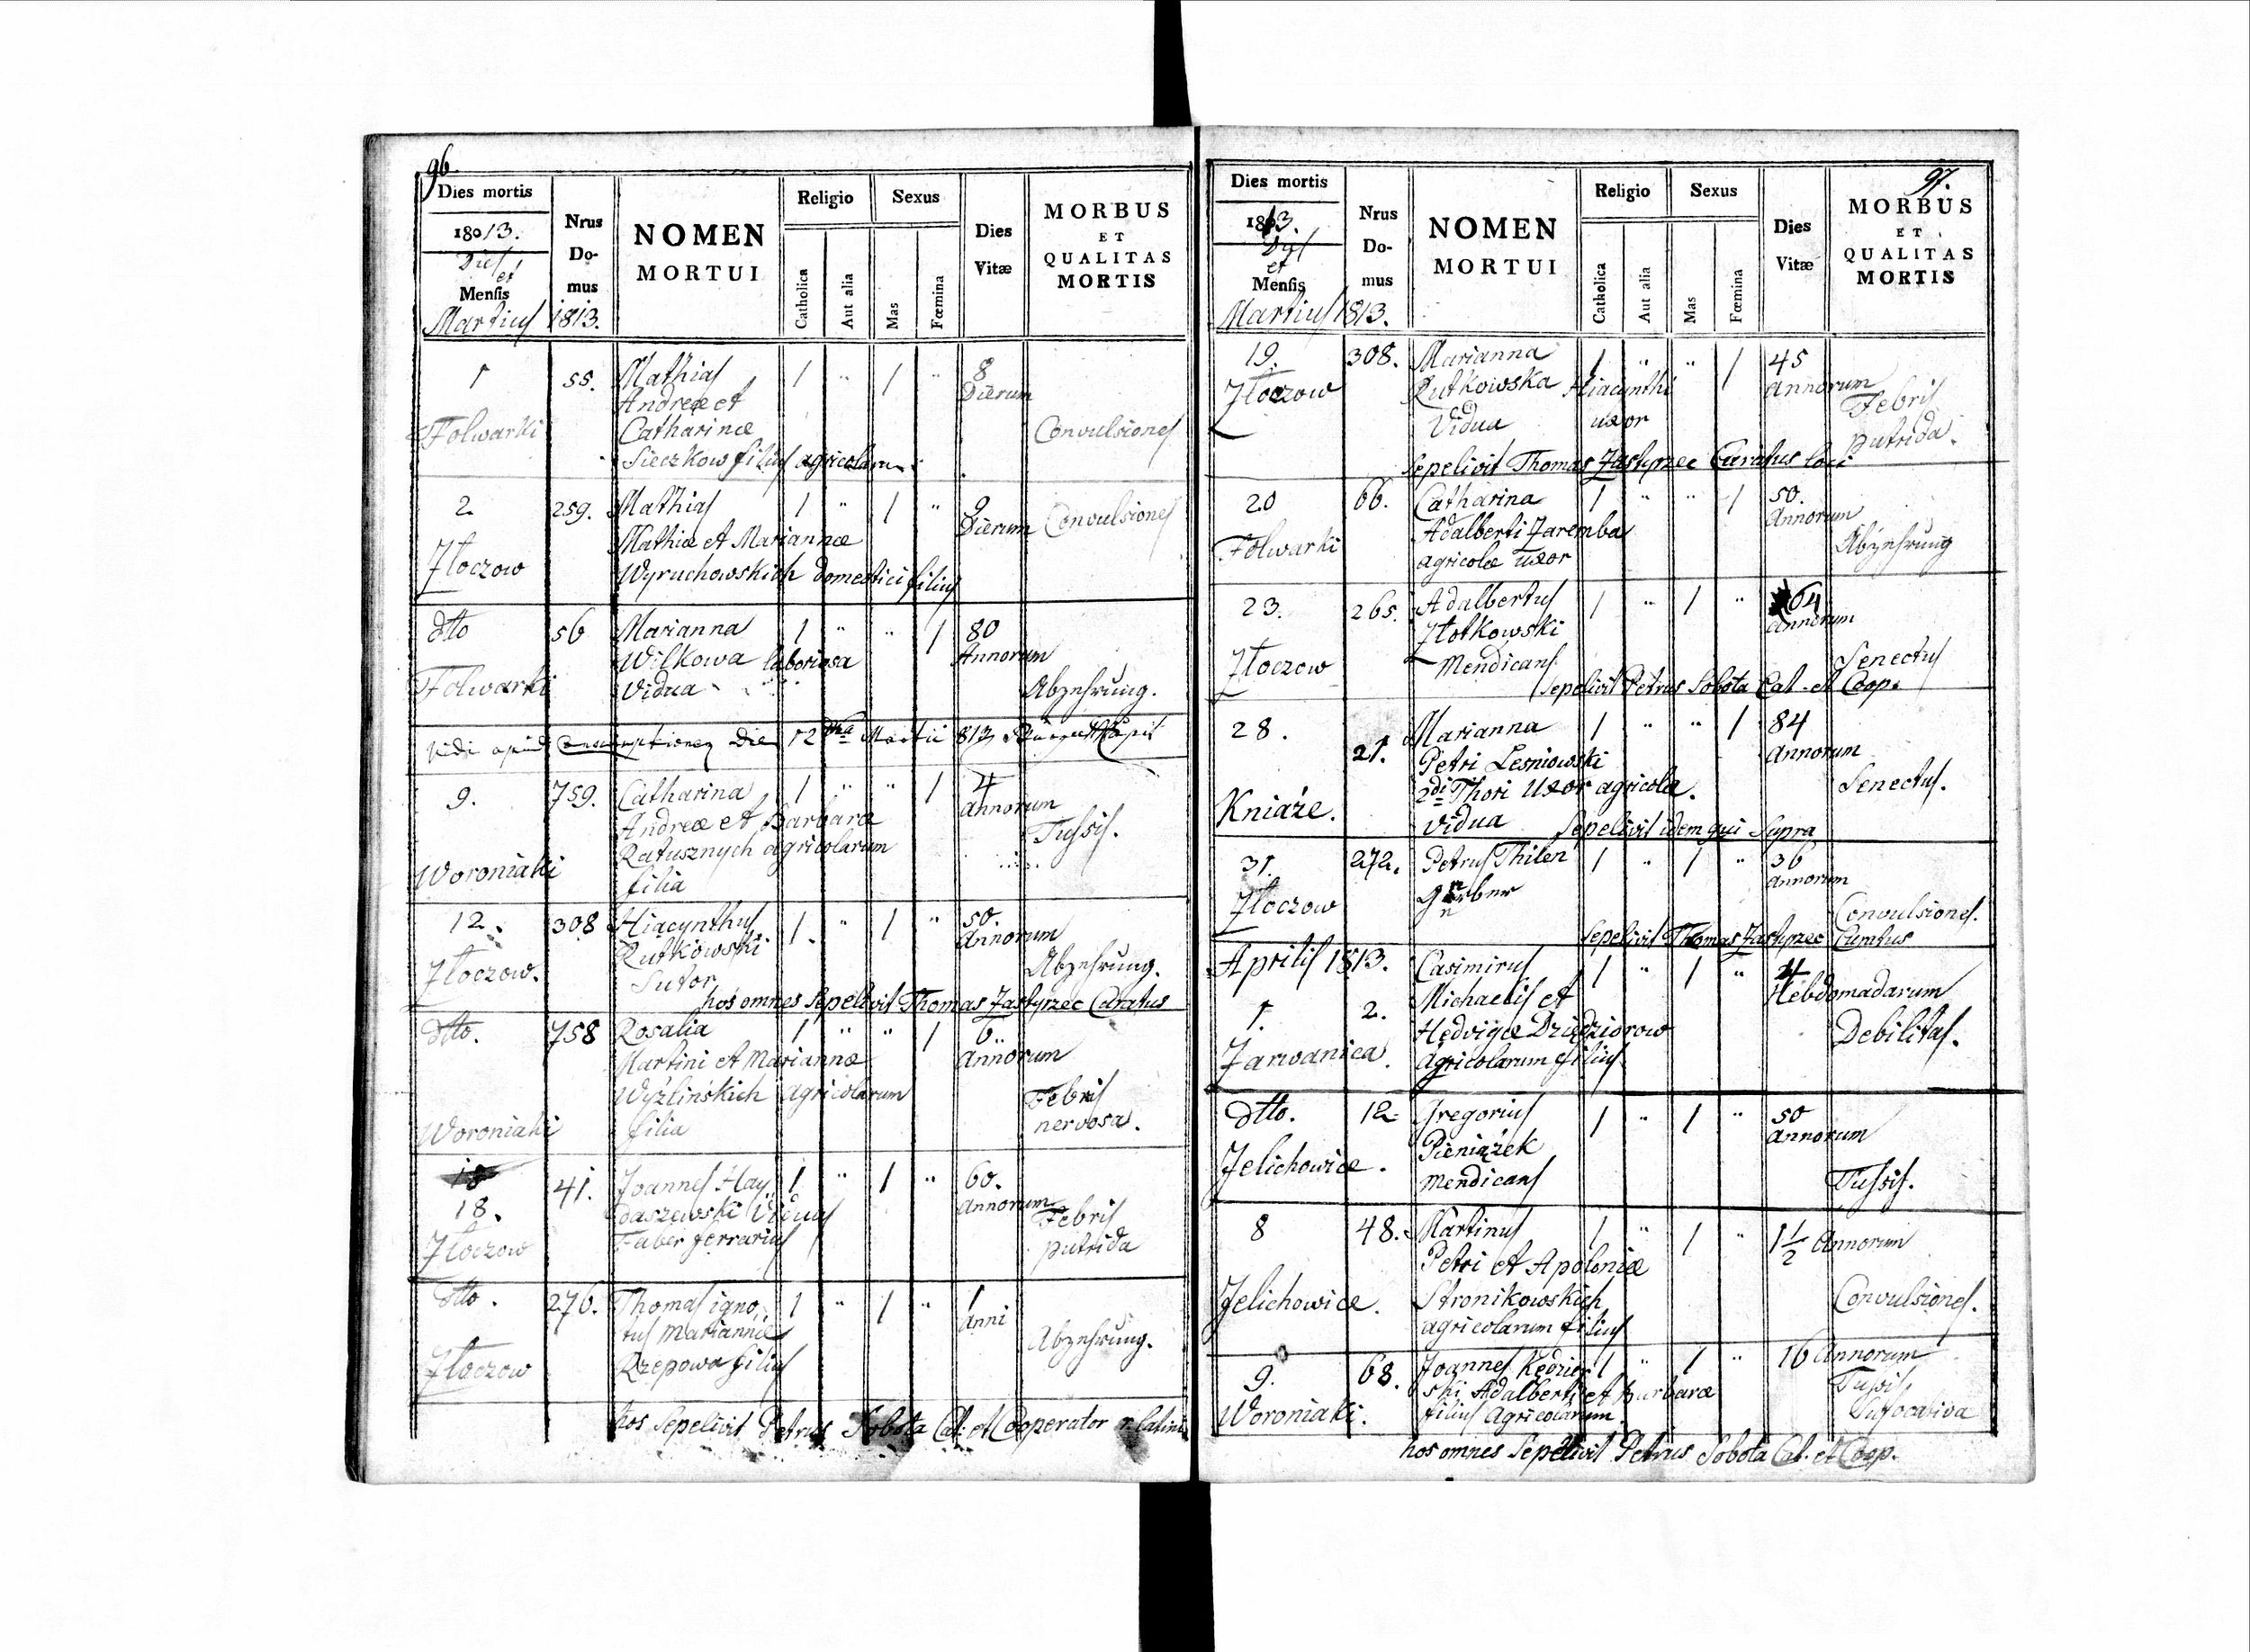 96.
Dies mortis
1813.
Dies
et
Mensis
Martius 1813.
Nrus
Do-
mus
NOMEN
MORTUI
Religio
Catholica
Aut alia
Sexus
Mas
Fœmina
Dies
Vitæ
MORBUS
ET
QUALITAS
MORTIS
1 55. Mathias 1 " 1 " 8
Andreæ et Dierum
Folwarki Catharinæ Convulsiones
Sieczkow filius agricolarum.
2 259. Mathias 1 " 1 " 9
Mathiæ et Mariannæ Dierum Convulsiones
Złoczow Wyruchowskich domestici filius
dtto 56 Marianna 1 " " 1 80
Wilkowa laboriosa Annorum
Folwarki vidua Abzehrung.
Vidi apud Conscriptionem Die 12 Martii 813
9. 759. Catharina 1 " " 1 4
Andreæ et Barbaræ Annorum
Ratusznych agricolarum Tussis.
Woroniaki filia
12. 308 Hiacynthus 1 " 1 " 50.
Rutkowski Annorum
Złoczow. Sutor Abzehrung.
hos omnes Sepelivit Thomas Jastrzec Curatus
dtto. 758 Rosalia 1 " " 1 6
Martini et Mariannæ Annorum
Wyźlińskich Agricolarum Febris
Woroniaki filia nervosa.
18
18. 41. Joannes Hay 1 " 1 " 60.
daszewski Viduus Annorum Febris
Złoczow Faber ferrarius putrida
dtto. 276. Thomas igno 1 " 1 " 1
tus Mariannæ Anni
Złoczow Rzepowa filius Abzehrung.
hos Sepelivit Petrus Sobota Cat: et Cooperator r. latini
97.
Dies mortis
1813.
Dies
et
Mensis
Martius 1813.
Nrus
Do-
mus
NOMEN
MORTUI
Religio
Catholica
Aut alia
Sexus
Mas
Fœmina
Dies
Vitæ
MORBUS
ET
QUALITAS
MORTIS
19. 308. Marianna 1 " " 1 45
Złoczow Rutkowska Hiacynthi Annorum Febris
Vidua uxor putrida.
Sepelivit Thomas Jastrzec Curatus loci
20 66. Catharina 1 " " 1 50.
Adalberti Zaremba Annorum
Folwarki agricolæ uxor Abzehrung
23. 265. Adalbertus 1 " 1 " 64
Złotkowski Annorum
Złoczow Mendicans Senectus
Sepelivit Petrus Sobota Cat. et Coop.
28. 21. Marianna 1 " " 1 84
Petri Lesniowski Annorum
2di Thori Uxor agricolæ. Senectus.
Kniaźe. vidua Sepelivit idem qui Supra
31. 272. Petrus Thilen 1 " 1 " 36
Złoczow Gerber Annorum
Convulsiones.
Sepelivit Thomas Jastrzec Curatus
Aprilis 1813. Casimirus 1 " 1 " 4
1. 2. Michaelis et Hebdomadarum
Hedvigæ Dziedziorow Debilitas.
Zarwanica. Agricolarum filius
dtto. 12 Gregorius 1 " 1 " 50
Pieniązek Annorum
Jelichowice. Mendicans Tussis.
8 48. Martinus 1 " 1 " 1 1/2 Annorum
Petri et Apoloniæ
Jelichowice. Stronikowskich Convulsiones.
agricolarum filius
9. 68. Joannes Kędzier 1 " 1 " 16 Annorum
ski Adalberti et Barbaræ Tussis
Woroniaki. filius Agricolarum. Sufocativa
hos omnes Sepelivit Petrus Sobota Cat. et Coop.